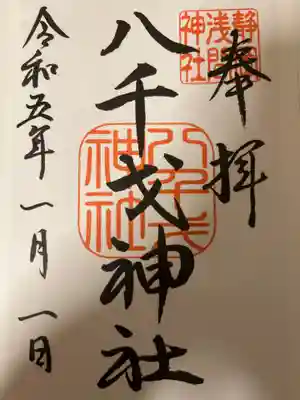 奉拝
静岡
浅間
神社
八千戈神社
八千戈
神社
令和五年一月一日